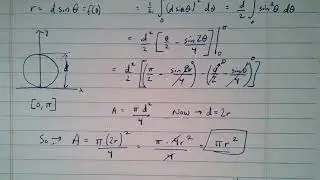 r = d sin θ = f(θ)
= 1/2 ∫₀ (d sin θ)² dθ = d²/2 ∫₀ sin² θ dθ
= d²/2 [θ/2 − sin 2θ/4] |₀^π
y
d
x
= d²/2 [(π/2 − sin 2π/4) − (0/2 − sin 0/4)]
[0, π]
A = πd²/4 Now → d = 2r
So → A = π(2r)²/4 = π·4r²/4 = πr²